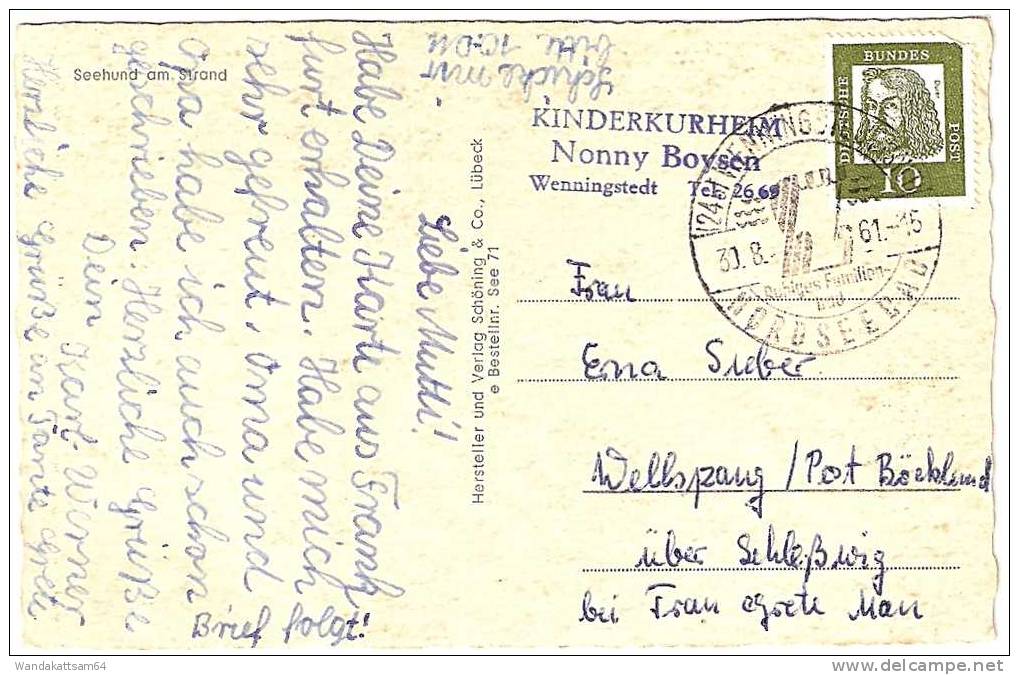 Seehund am Strand
Schicke mir
bitte 10.-DM
Liebe Mutti!
Habe Deine Karte aus Frank
furt erhalten. Habe mich
sehr gefreut. Oma und
Opa habe ich auch schon
geschrieben. Herzliche Grüße
Dein Karl-Werner
Herzliche Grüße an Tante Grete
Brief folgt!
Hersteller und Verlag Schöning & Co., Lübeck
e Bestellnr. See 71
KINDERKURHEIM
Nonny Boysen
Wenningstedt Tel. 2669
DEUTSCHE
BUNDES
POST
10
30.8.
61.-15
Ruhiges Familien-
bad
NORDSEEBAD
Frau
Erna Sieber
Wellspang / Post Böcklund
über Schleßwig
bei Frau Grete Man
Wandakattsam64
www.delcampe.net